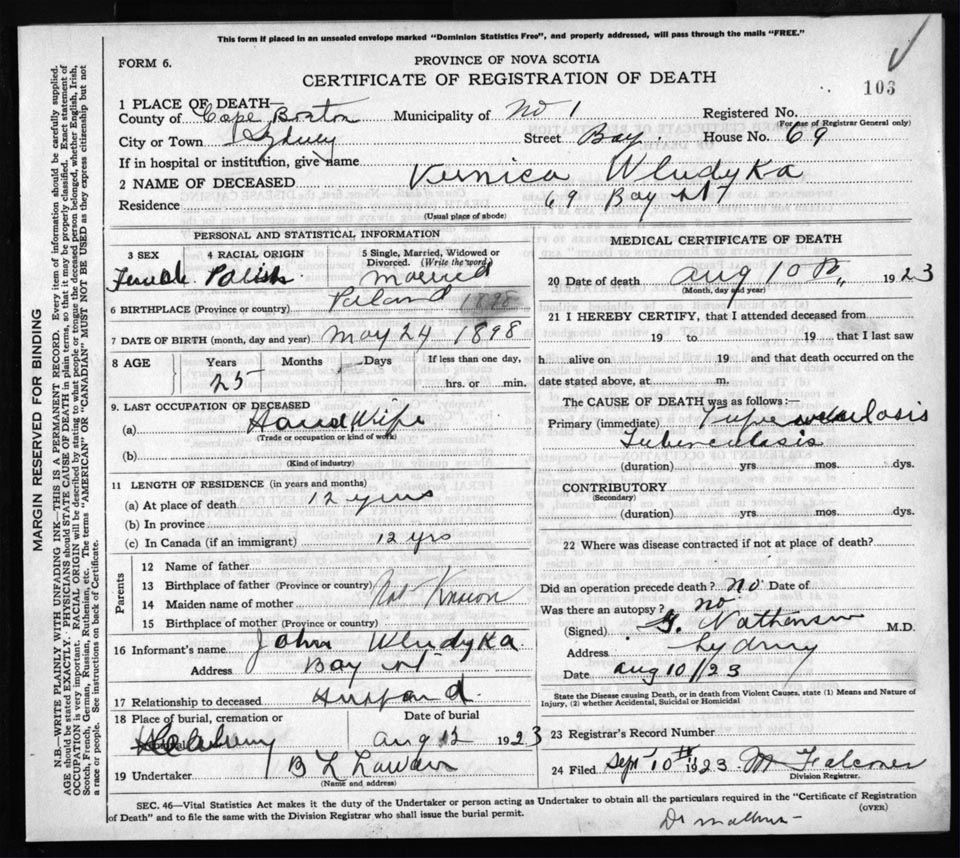 This form if placed in an unsealed envelope marked "Dominion Statistics Free", and properly addressed, will pass through the mails "FREE."
FORM 6.
PROVINCE OF NOVA SCOTIA
CERTIFICATE OF REGISTRATION OF DEATH
103
1 PLACE OF DEATH—
County of Cape Breton Municipality of No 1 Registered No.
(For use of Registrar General only)
City or Town Sydney Street Bay. House No. 69
If in hospital or institution, give name
2 NAME OF DECEASED Vernica Wludyka
Residence 69 Bay St
(Usual place of abode)
PERSONAL AND STATISTICAL INFORMATION
3 SEX 4 RACIAL ORIGIN 5 Single, Married, Widowed or Divorced. (Write the word)
Female Polish Married
6 BIRTHPLACE (Province or country) Poland 1898
7 DATE OF BIRTH (month, day and year) May 24 1898
8 AGE Years Months Days If less than one day,
25 hrs. or min.
9. LAST OCCUPATION OF DECEASED
(a) HouseWife
(Trade or occupation or kind of work)
(b)
(Kind of industry)
11 LENGTH OF RESIDENCE (in years and months)
(a) At place of death 12 yrs
(b) In province
(c) In Canada (if an immigrant) 12 yrs
Parents
12 Name of father
13 Birthplace of father (Province or country) Not Known
14 Maiden name of mother
15 Birthplace of mother (Province or country)
16 Informant's name John Wludyka
Address Bay St
17 Relationship to deceased Husband
18 Place of burial, cremation or Date of burial
Aug 12 1923
19 Undertaker
(Name and address)
MEDICAL CERTIFICATE OF DEATH
20 Date of death Aug 10th 1923
(Month, day and year)
21 I HEREBY CERTIFY, that I attended deceased from
19 to 19 that I last saw
h alive on 19 and that death occurred on the
date stated above, at m.
The CAUSE OF DEATH was as follows:—
Primary (immediate)
Tuberculosis
(duration) yrs mos. dys.
CONTRIBUTORY
(Secondary)
(duration) yrs mos. dys.
22 Where was disease contracted if not at place of death?
Did an operation precede death? No Date of
Was there an autopsy? No
(Signed) Nathanson M.D.
Address Sydney
Date Aug 10/23
State the Disease causing Death, or in death from Violent Causes, state (1) Means and Nature of Injury, (2) whether Accidental, Suicidal or Homicidal
23 Registrar's Record Number
24 Filed Sept 10th 1923 M Falconer
Division Registrar.
SEC. 46—Vital Statistics Act makes it the duty of the Undertaker or person acting as Undertaker to obtain all the particulars required in the "Certificate of Registration of Death" and to file the same with the Division Registrar who shall issue the burial permit.
(OVER)
MARGIN RESERVED FOR BINDING
N.B.—WRITE PLAINLY WITH UNFADING INK—THIS IS A PERMANENT RECORD. Every item of information should be carefully supplied.
AGE should be stated EXACTLY. PHYSICIANS should STATE CAUSE OF DEATH in plain terms, so that it may be properly classified. Exact statement of
OCCUPATION is very important. RACIAL ORIGIN will be described by stating to what people or tongue the deceased person belonged, whether English, Irish,
Scotch, French, German, Russian, Ruthenian, etc. The terms "AMERICAN" or "CANADIAN" MUST NOT BE USED as they express citizenship but not
a race or people. See instructions on back of Certificate.